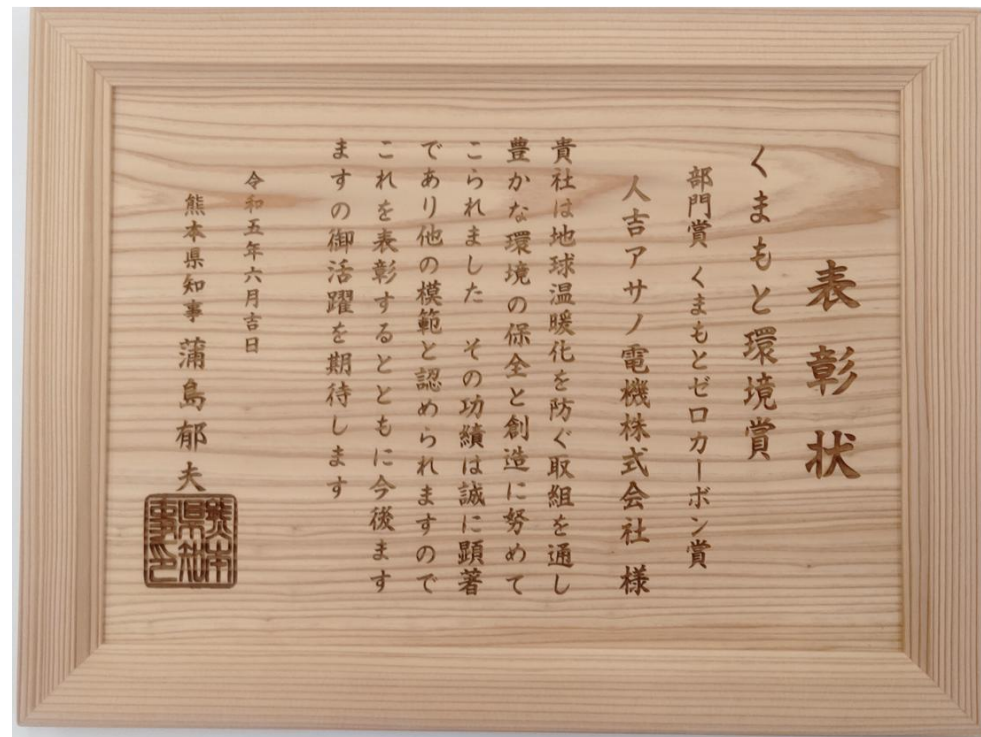 表彰状
くまもと環境賞
部門賞 くまもとゼロカーボン賞
人吉アサノ電機株式会社 様
貴社は地球温暖化を防ぐ取組を通し
豊かな環境の保全と創造に努めて
こられました その功績は誠に顕著
であり他の模範と認められますので
これを表彰するとともに今後ます
ますの御活躍を期待します
令和五年六月吉日
熊本県知事 蒲島郁夫
熊本県知事印